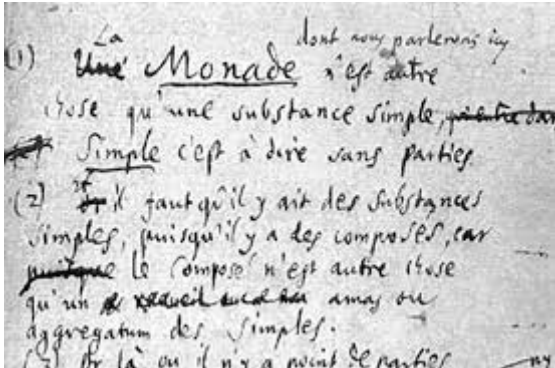 La dont nous parlerons icy
(1) Une Monade n'est autre
chose qu'une substance simple, qui entre dan
Simple c'est à dire sans parties
(2) Et il faut qu'il y ait des substances
simples, puisqu'il y a des composés, car
puisque le composé n'est autre chose
qu'un recueil amas ou
aggregatum des simples.
(3) Or là ou il n'y a point de parties ny